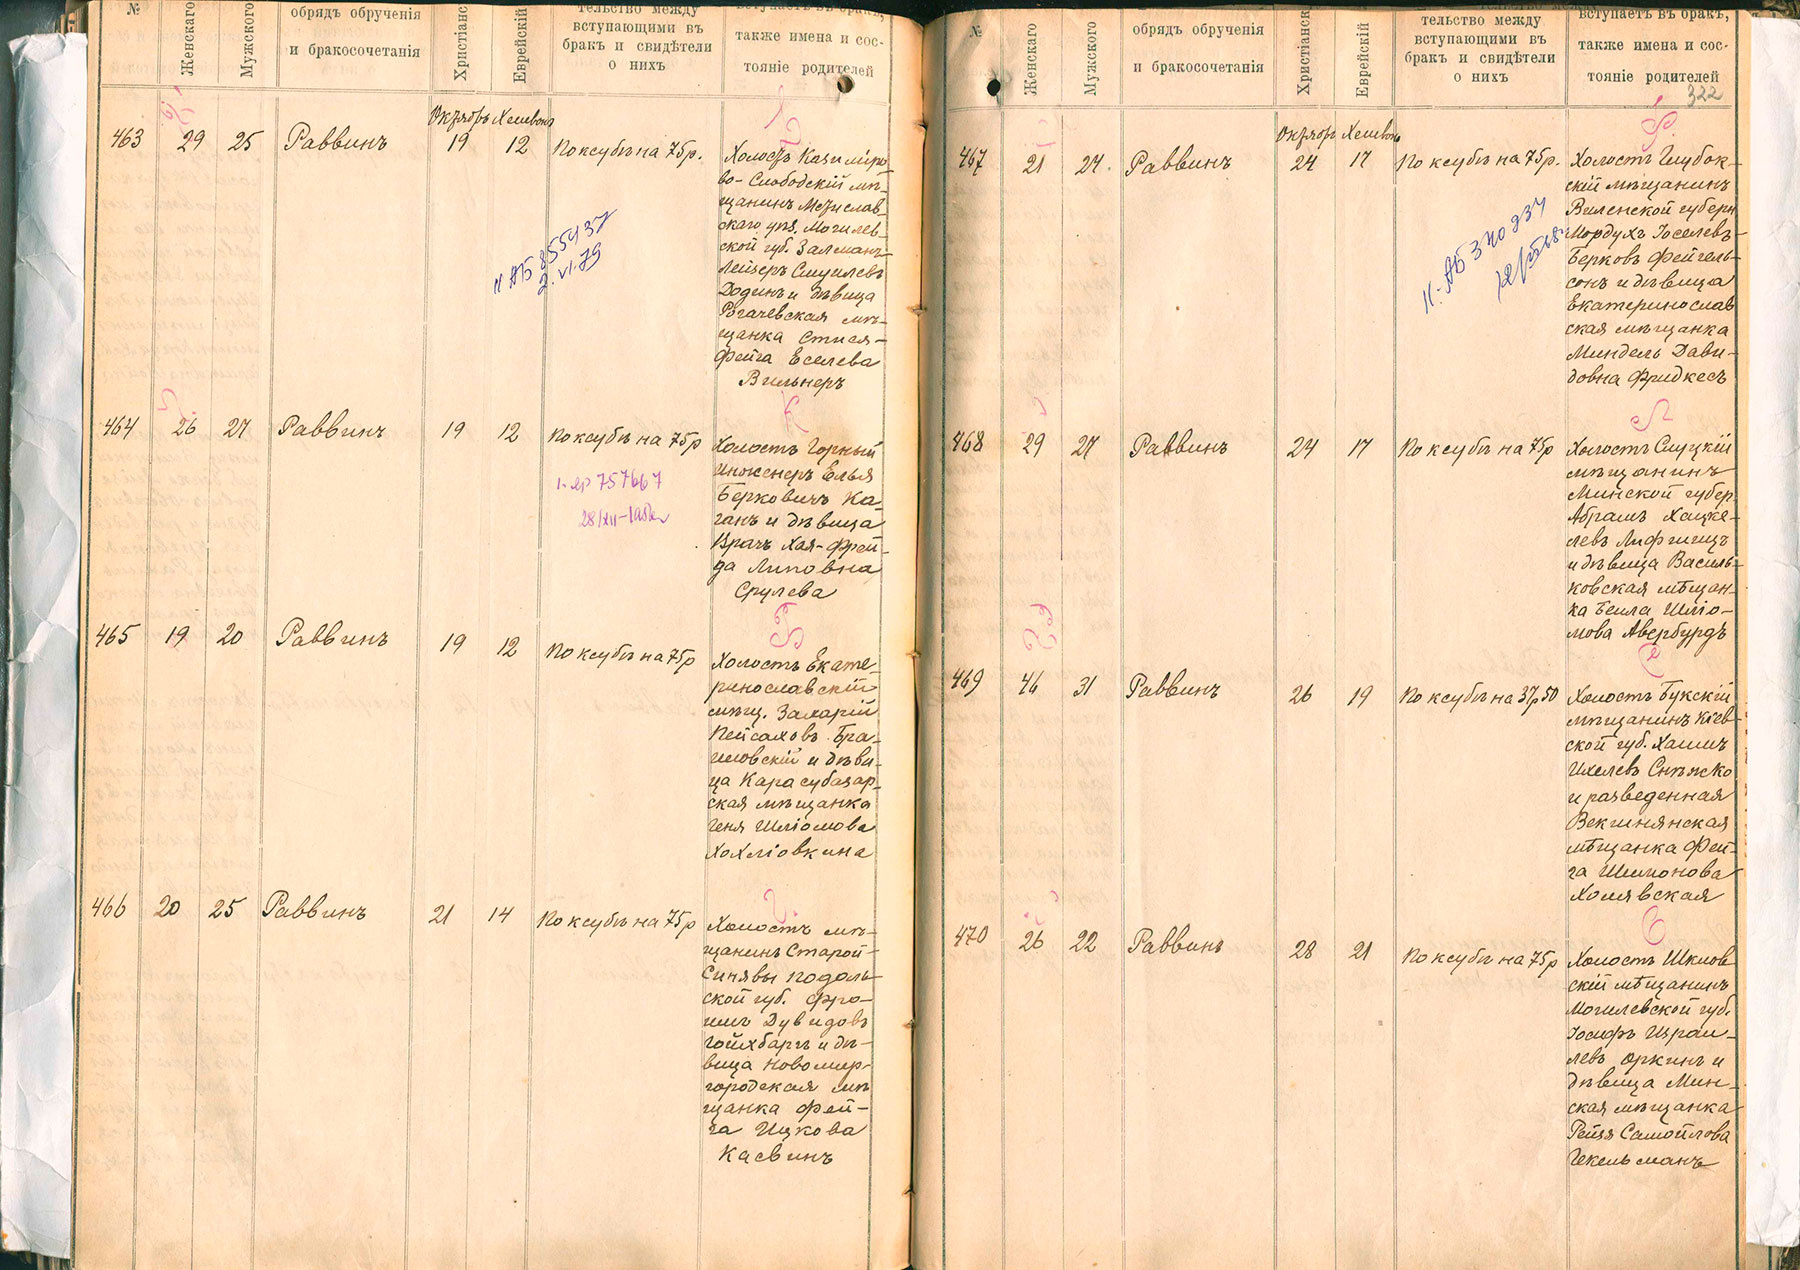 №
Женскаго
Мужскаго
обрядъ обрученія
и бракосочетанія
Христіанс
Еврейскій
тельство между
вступающими въ
бракъ и свидѣтели
о нихъ
вступаетъ въ бракъ,
также имена и сос-
тояніе родителей
Октябрь Хешвонъ
463 29 25 Раввинъ 19 12 По ксубѣ на 75 р.
Холостъ Казиміро
во-Слободскій мѣ-
щанинъ Мстислав-
скаго уѣз. Могилев-
ской губ. Залманъ-
Лейзеръ Смуилевъ
Додинъ и дѣвица
Рогачевская мѣ-
щанка Стися-
Фейга Еселева
Вильнеръ
II АБ 855437
2.VI.79
464 26 27 Раввинъ 19 12 По ксубѣ на 75 р
Холостъ Горный
инженеръ Елья
Берковичъ Ка-
ганъ и дѣвица
Врачъ Хая-Фрей-
да Липовна
Срулева
757667
465 19 20 Раввинъ 19 12 По ксубѣ на 75 р
Холостъ Екате-
ринославскій
мѣщ. Захарій
Пейсаховъ Бра-
иловскій и дѣви-
ца Карасубазар-
ская мѣщанка
Геня Шліомова
Хохліовкина
466 20 25 Раввинъ 21 14 По ксубѣ на 75 р
Холостъ мѣ-
щанинъ Старой-
Синявы Подоль-
ской губ. Фро-
имъ Дувидовъ
Гойхбаргъ и дѣ-
вица Новомир-
городская мѣ-
щанка Фей-
га Ицкова
Касвинъ
№
Женскаго
Мужского
обрядъ обрученія
и бракосочетанія
Христіанск
Еврейскій
тельство между
вступающими въ
бракъ и свидѣтели
о нихъ
вступаетъ въ бракъ,
также имена и сос-
тояніе родителей
322
Октябрь Хешвонъ
467 21 24 Раввинъ 24 17 По ксубѣ на 75 р.
Холостъ Глубок-
скій мѣщанинъ
Виленской губерн
Мордухъ Іоселевъ-
Берковъ Фейгель-
сонъ и дѣвица
Екатеринослав
ская мѣщанка
Миндель Дави-
довна Фридкесъ
II-АБ 340234
468 29 27 Раввинъ 24 17 По ксубѣ на 75 р
Холостъ Слуцкій
мѣщанинъ
Минской губер.
Абрамъ Хацке-
левъ Лифшицъ
и дѣвица Василь-
ковская мѣщан-
ка Бейла Шліо-
мова Авербурдъ
469 46 31 Раввинъ 26 19 По ксубѣ на 37 р 50
Холостъ Букскій
мѣщанинъ Кіев-
ской губ. Хаимъ
Ихелевъ Снѣжко
и разведенная
Векшнянская
мѣщанка Фей-
га Шимонова
Холявская
470 26 22 Раввинъ 28 21 По ксубѣ на 75 р
Холостъ Шклов
скій мѣщанинъ
Могилевской губ.
Іосифъ Израи-
левъ Оркинъ и
дѣвица Мин-
ская мѣщанка
Рейзя Самойлова
Гекельманъ